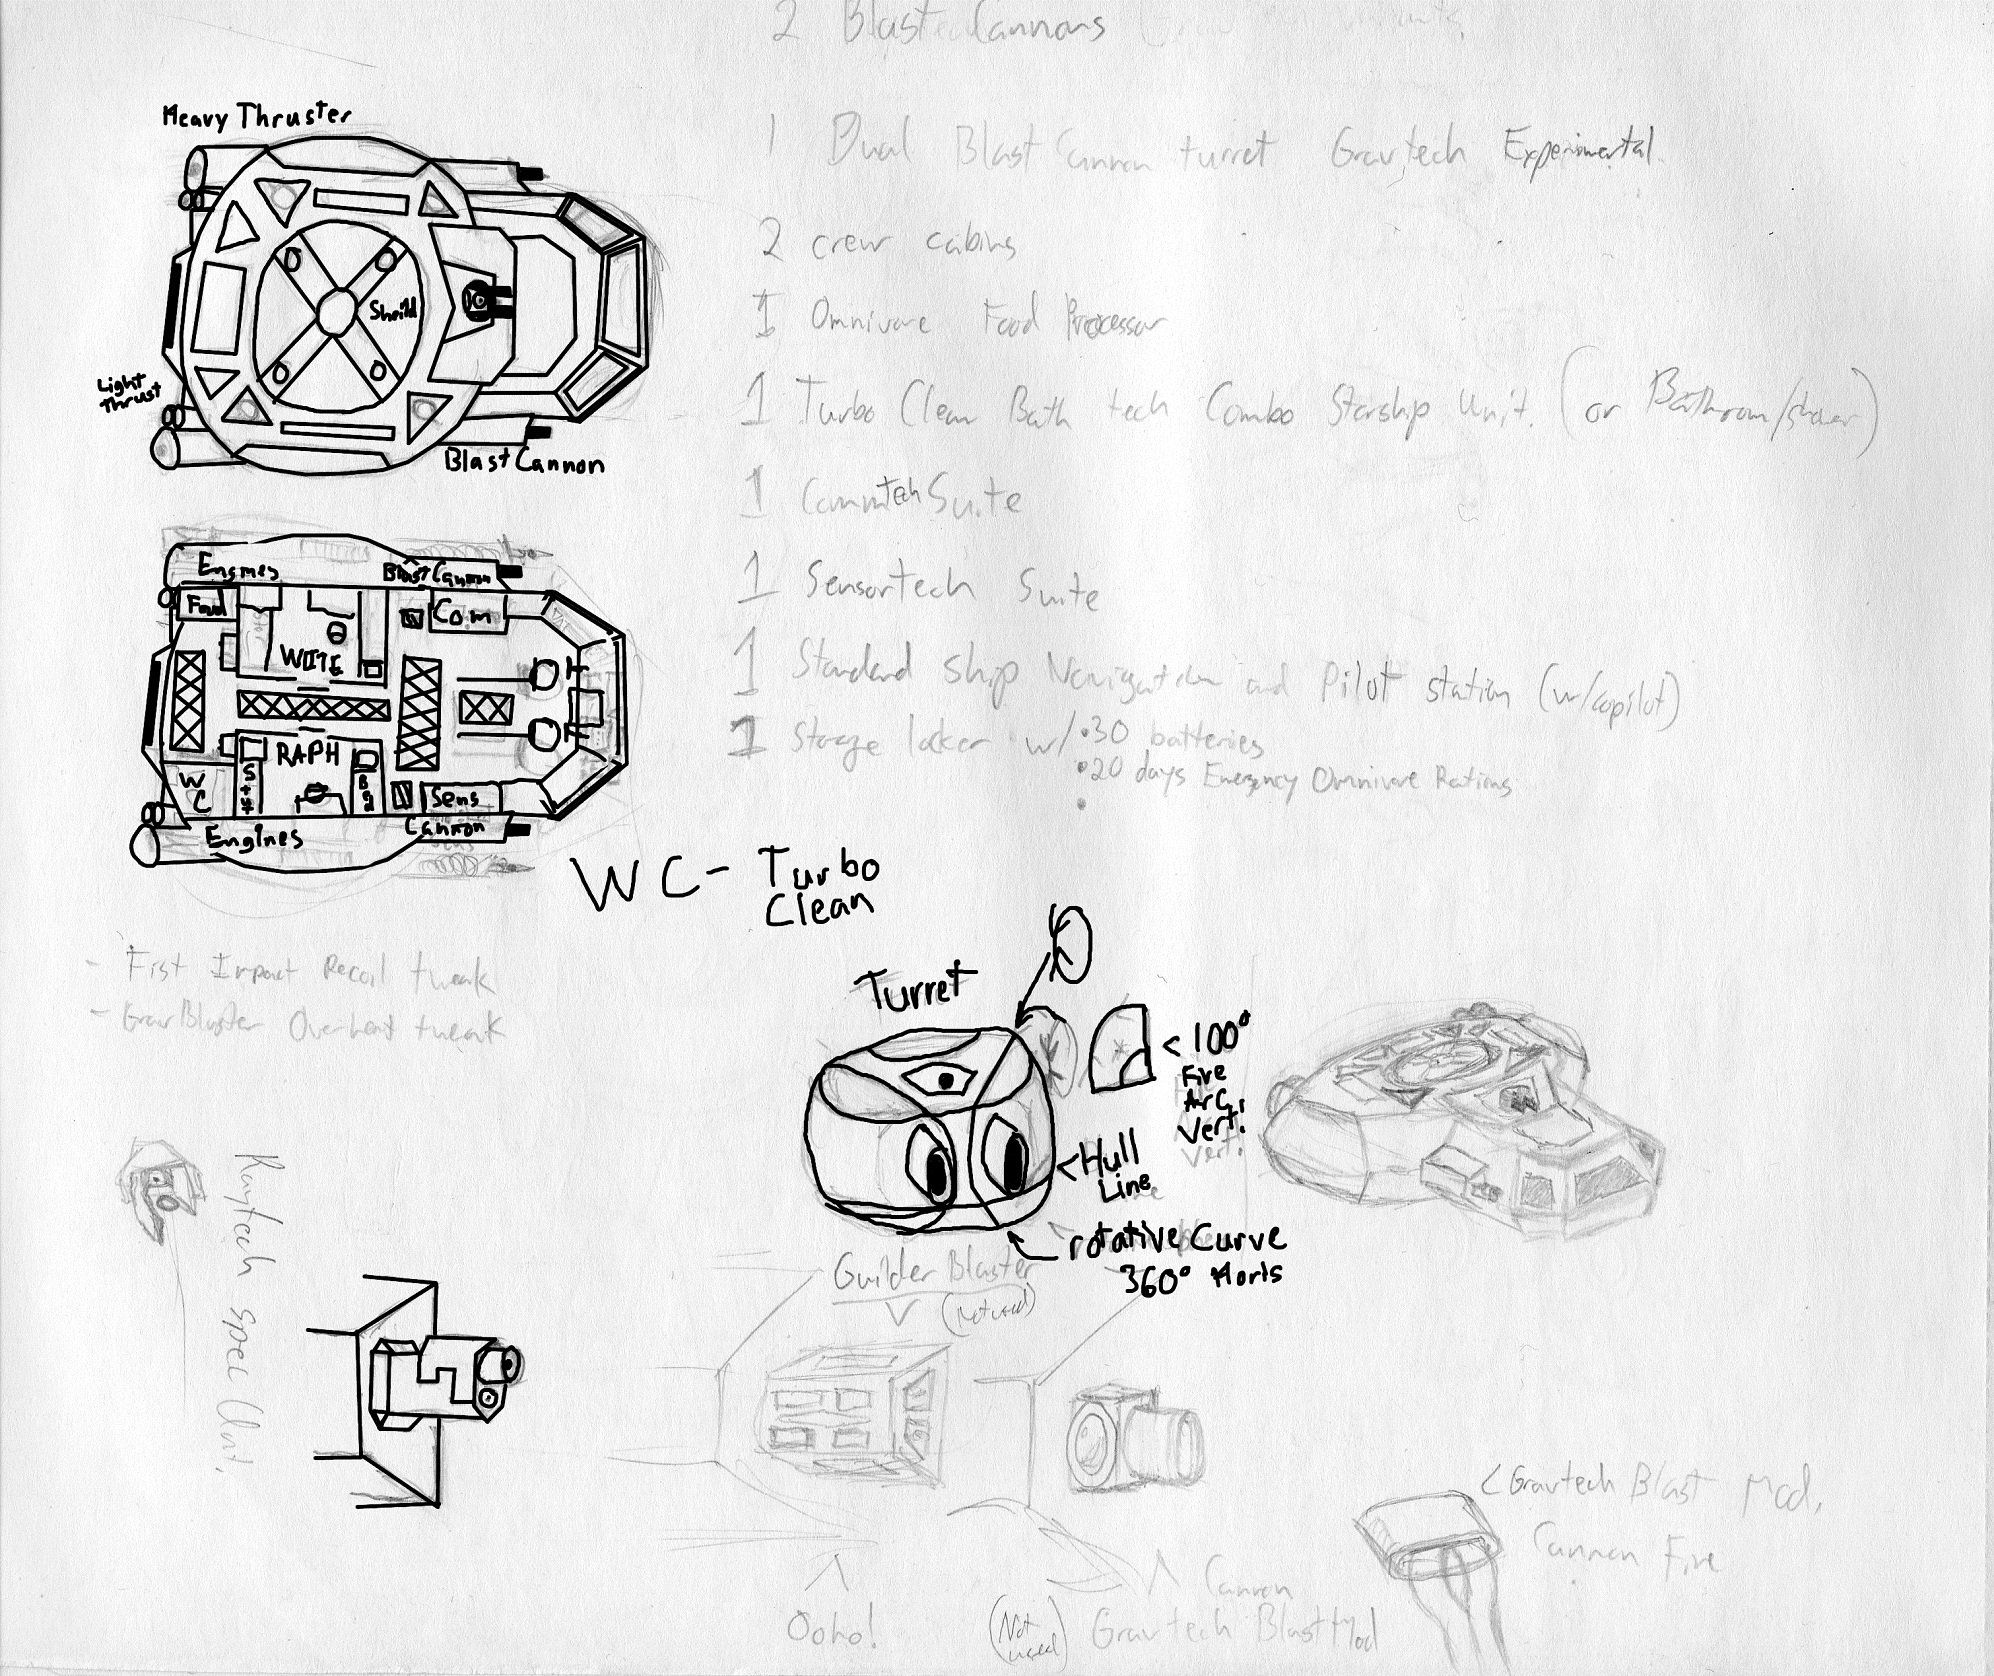 2 Blast Cannons
Heavy Thruster
1 Dual Blast Cannon turret Gravtech Experimental.
2 crew cabins
1 Omnivore Food Processor
Sheild
Light
Thrust
1 Turbo Clean Bath tech Combo Starship Unit. (or Bathroom/shower)
Blast Cannon
1 Commtech Suite
Engines
Blast Cannon
Food
Com
1 Sensortech Suite
WOITE
1 Standard ship Navigation and Pilot station (w/copilot)
1 Storage locker w/ •30 batteries
•20 days Emergency Omnivore Rations
•
RAPH
WC
Bed
Sens
Engines
Cannon
WC- Turbo
Clean
- Fist Impact Recoil tweak
- GravBlaster Overheat tweak
Turret
< 100°
Fire
Arc.
Vert.
Vert.
<Hull
Line
rotative Curve
360° Horis
Raytech spec Unit.
Guilder Blaster
V (Not used)
<Gravtech Blast Mod.
Cannon Fire
Ooho!
Cannon
(Not used) Gravtech Blast Mod